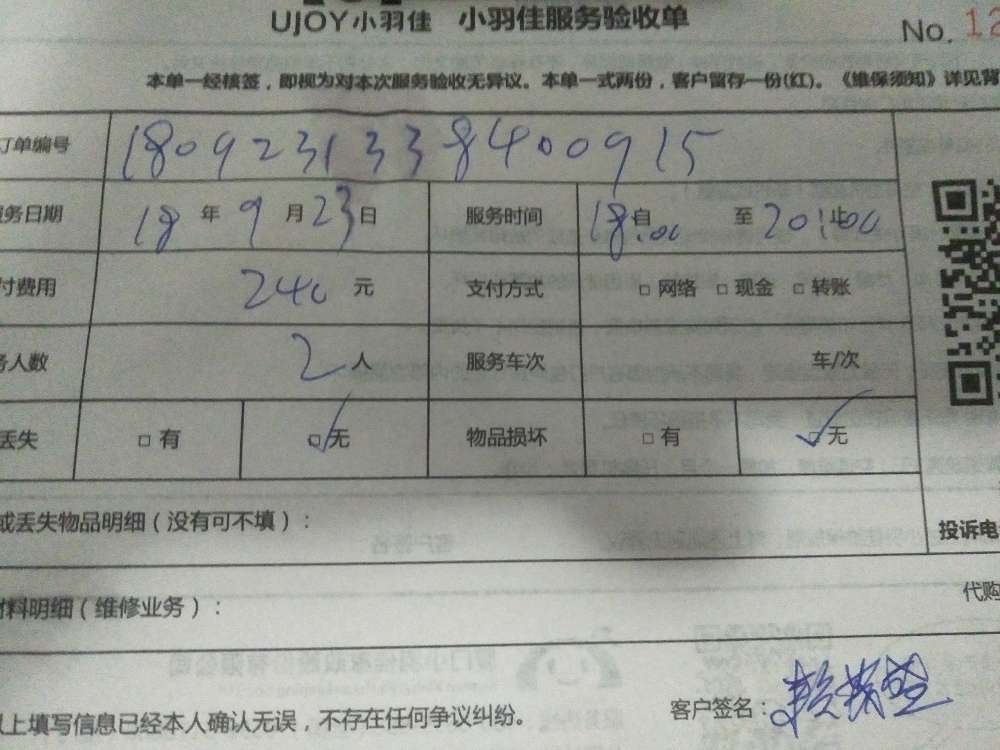 UJOY小羽佳 小羽佳服务验收单
No. 12
本单一经核签，即视为对本次服务验收无异议。本单一式两份，客户留存一份(红)。《维保须知》详见背
订单编号 1809231338400915
服务日期 18 年 9 月 23 日 服务时间 18:00 自 至 20:00 止
付费用 240 元 支付方式 □ 网络 □ 现金 □ 转账
务人数 2 人 服务车次 车/次
丢失 □ 有 ☑ 无 物品损坏 □ 有 ☑ 无
或丢失物品明细（没有可不填）：
投诉电
材料明细（维修业务）：
代购
以上填写信息已经本人确认无误，不存在任何争议纠纷。
客户签名：